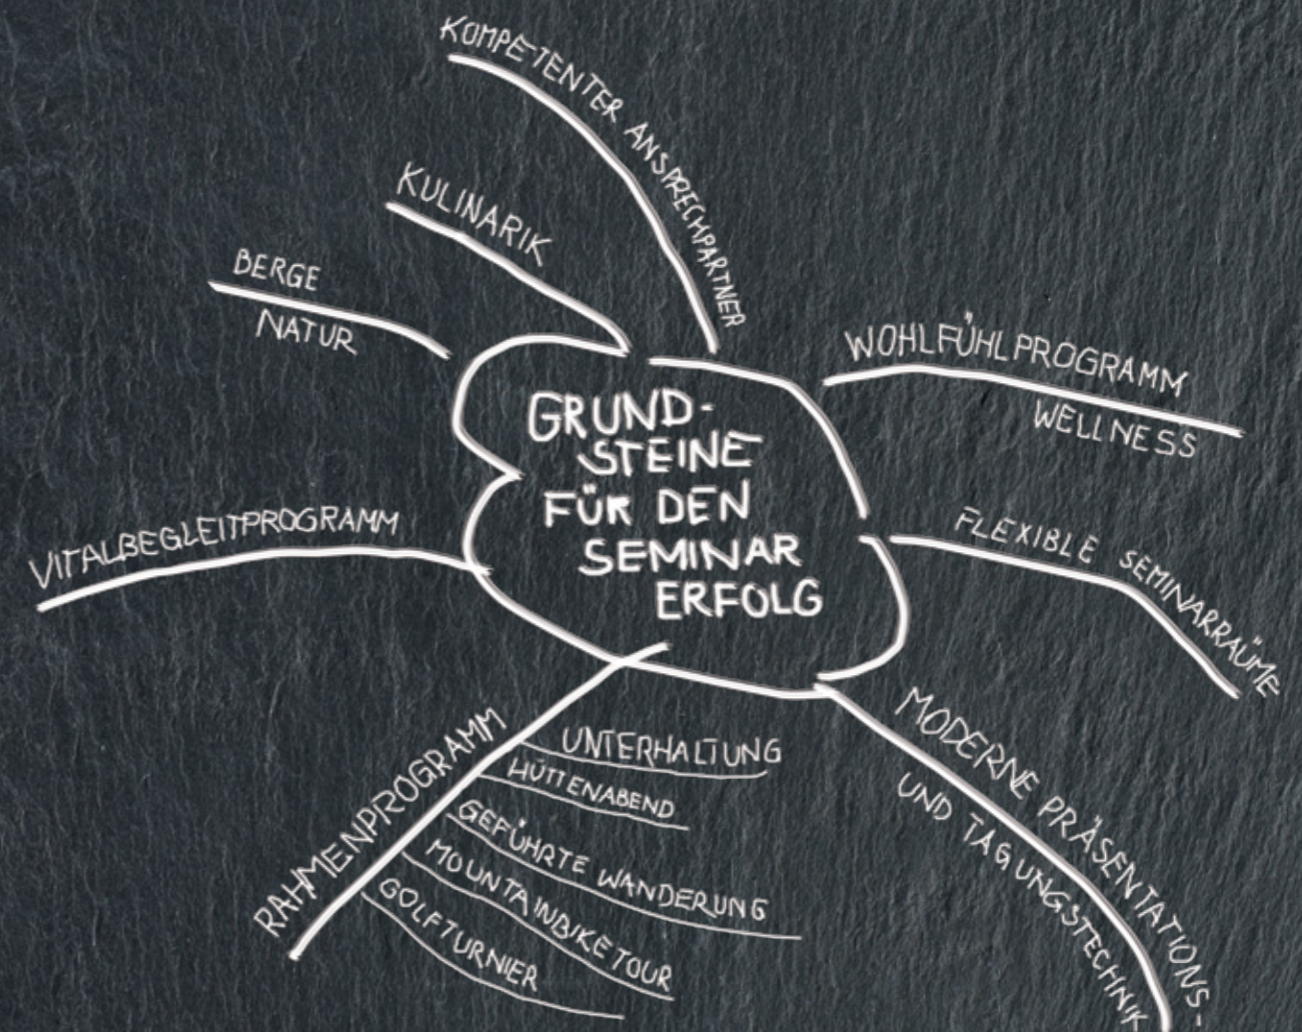 GRUND-
STEINE
FÜR DEN
SEMINAR
ERFOLG
KOMPETENTER ANSPRECHPARTNER
KULINARIK
BERGE
NATUR
VITALBEGLEITPROGRAMM
WOHLFÜHLPROGRAMM
WELLNESS
FLEXIBLE SEMINARRAÜME
MODERNE PRÄSENTATIONS-
UND TAGUNGSTECHNIK
RAHMENPROGRAMM
UNTERHALTUNG
HÜTTENABEND
GEFÜHRTE WANDERUNG
MOUNTAINBIKETOUR
GOLFTURNIER